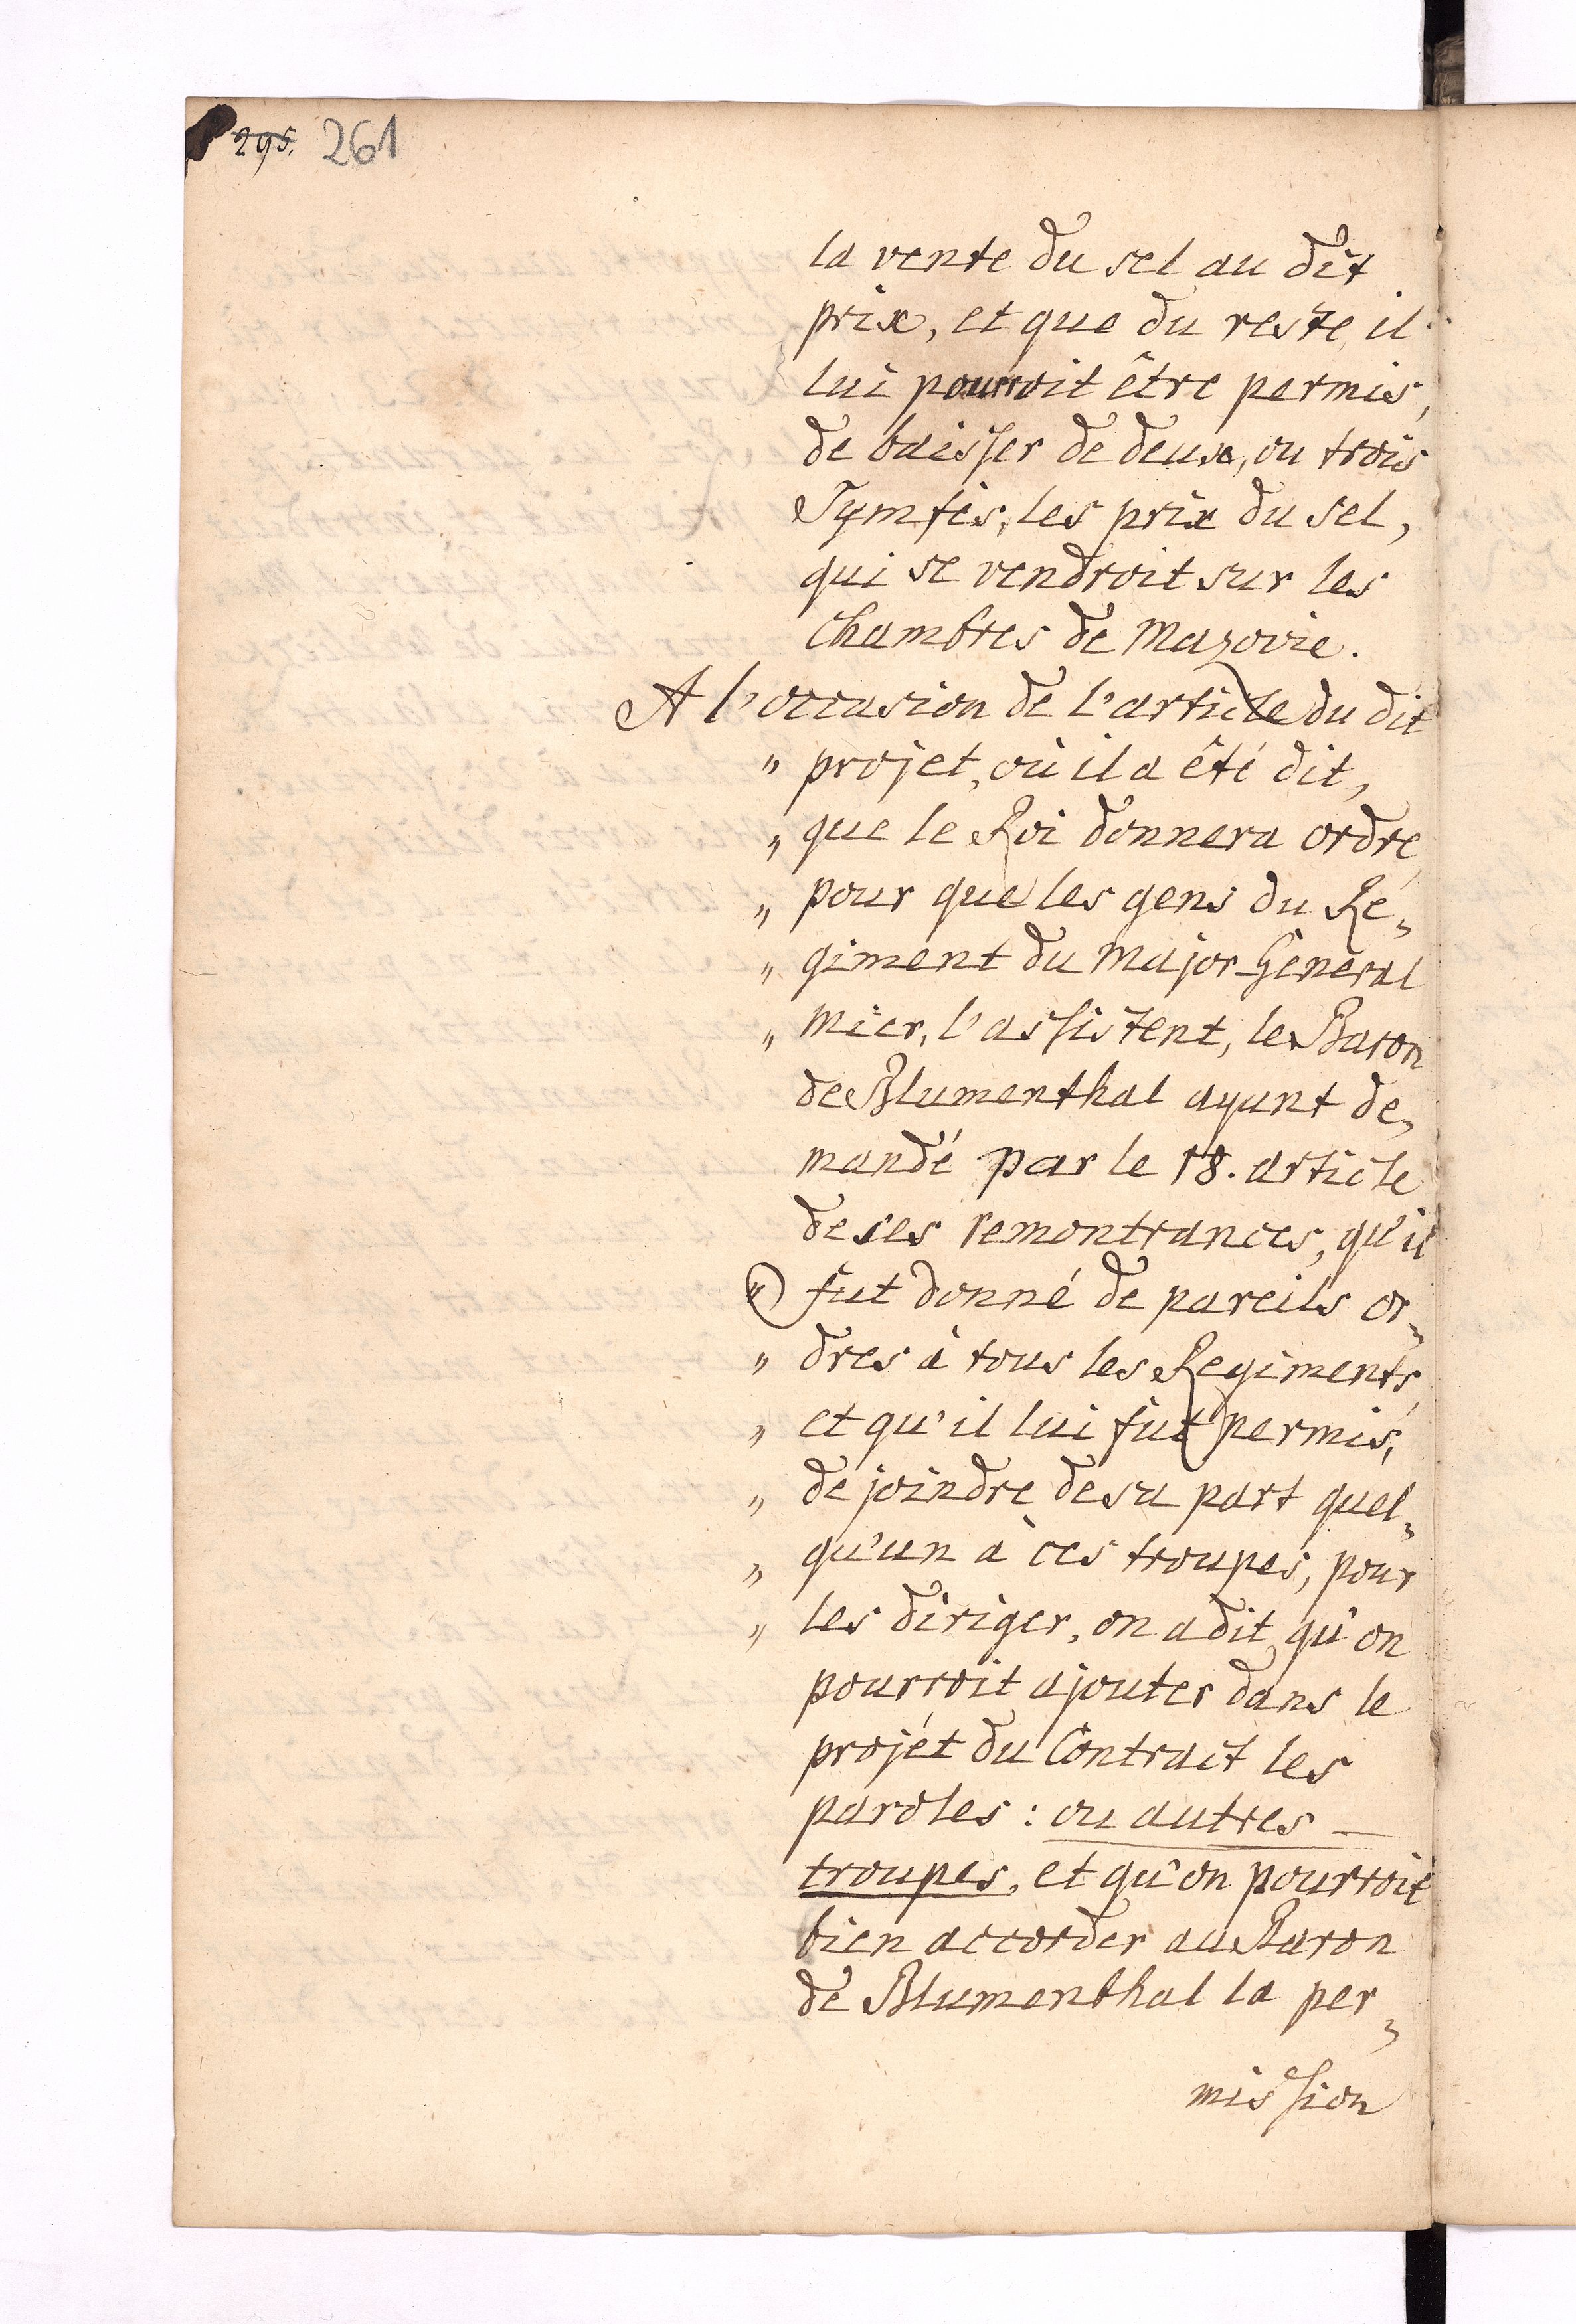 295. 261
la vente du sel au dit
prix, et que du reste, il
lui pourroit être permis,
de baisser de deux, ou trois
Tymfes, les prix du sel,
qui se vendroit sur les
chambres de Mazovie.
A l'occasion de l'article du dit
" projet, où il a êté dit,
" que le Roi donnera ordre,
" pour que les gens du Ré-
" giment du Major-Géneral
" Mier, l'assistent, le Baron
de Blumenthal ayant de-
mandé par le 18. article
de ses remontrances, qu'il
" fut donné de pareils or-
" dres à tous les Regiments,
" et qu'il lui fut permis,
" de joindre de sa part quel-
" qu'un à ces troupes, pour
" les diriger, on a dit qu'on
pourroit ajouter dans le
projét du Contract les
paroles: ou autres -
troupes, et qu'on pourroit
bien accorder au Baron
de Blumenthal la per-
mission